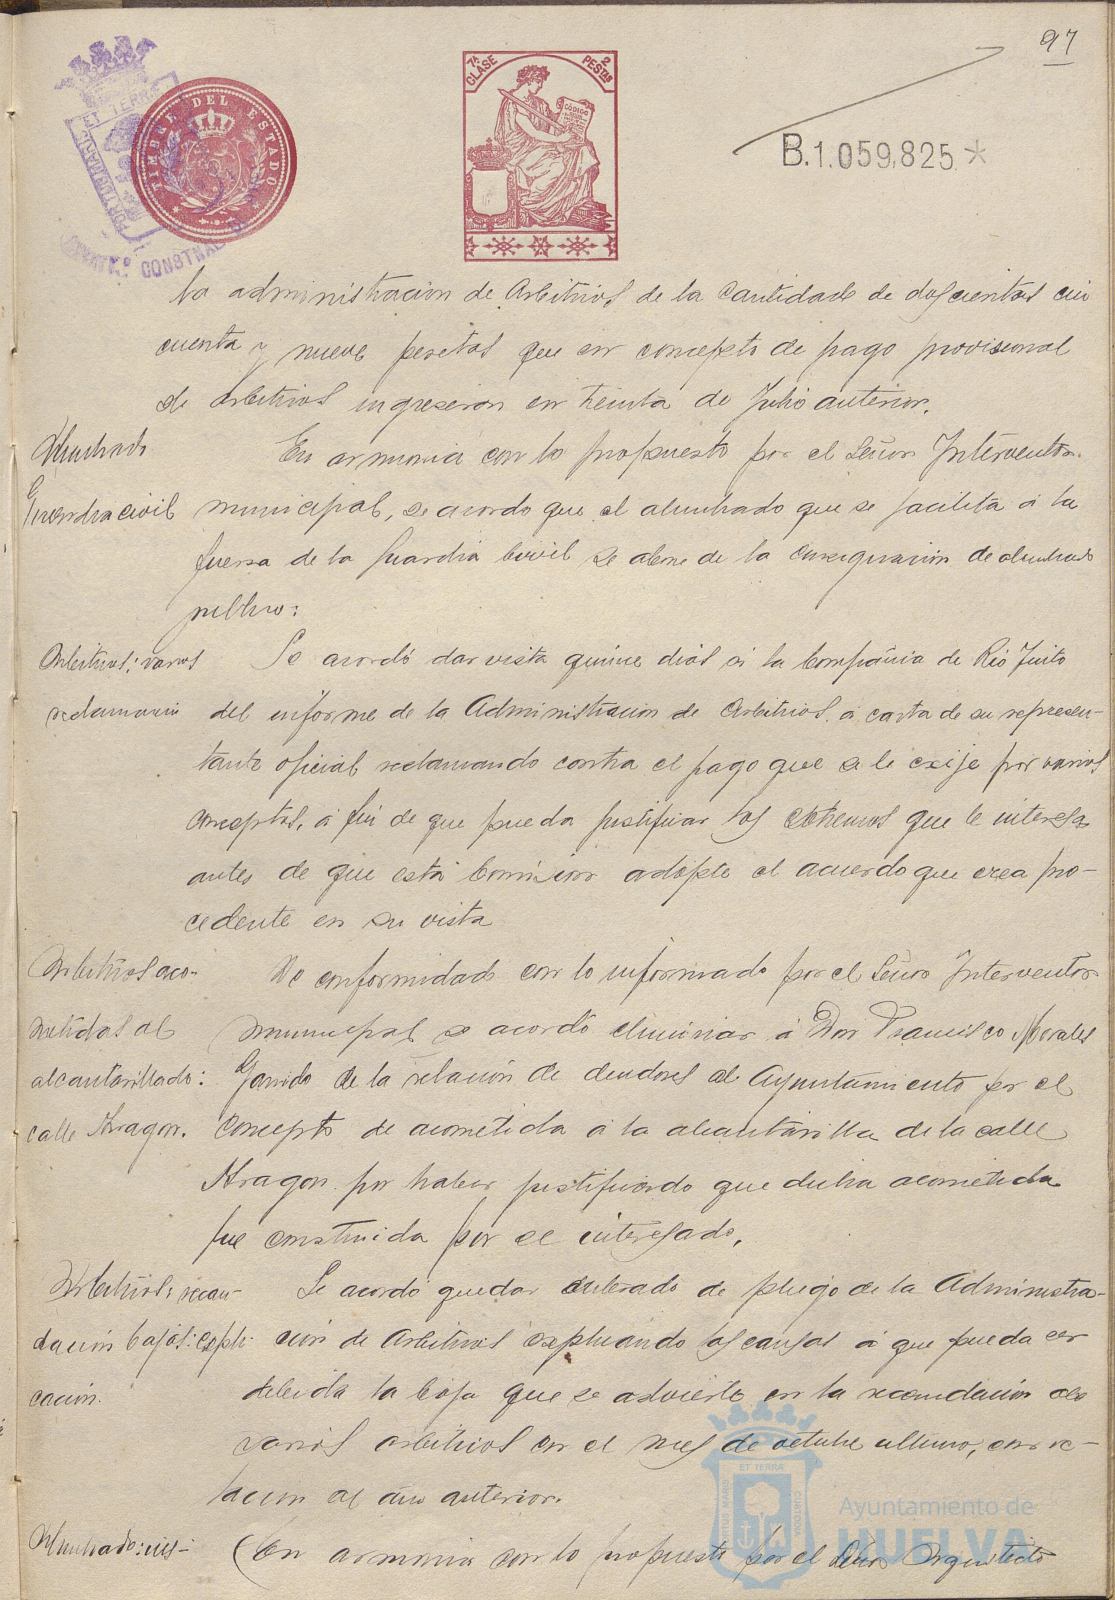 97
7ª CLASE
2 PESTAS
CÓDIGO
TIMBRE DEL ESTADO
B.1.059,825*
la administracion de Arbitrios de la cantidad de doscientas cin
cuenta y nueve pesetas que en concepto de pago provisional
de arbitrios ingresaron en treinta de Julio anterior.
Alumbrado
Guardia civil
En armonia con lo propuesto por el Señor Interventor
municipal, se acordo que el alumbrado que se facilita á la
fuerza de la Guardia Civil se abone de la consignacion de alumbrado
publico:
Arbitrios: varios
reclamacion
Se acordó dar vista quince dias á la Compañia de Rio Tinto
del informe de la Administracion de Arbitrios á carta de su represen-
tante oficial reclamando contra el pago que se le exije por varios
conceptos, á fin de que pueda justificar los extremos que le interesa
antes de que esta Comision adopte el acuerdo que crea pro-
cedente en su vista
Arbitrios aco-
metidas al
alcantarillado:
calle Aragon.
De conformidad con lo informado por el Señor Interventor
municipal se acordó eliminar á Don Francisco Morales
Garrido de la relación de deudores al Ayuntamiento por el
concepto de acometida a la alcantarilla de la calle
Aragon por haber justificado que dicha acometida
fue construida por el interesado.
Arbitrios; recau-
dación bajas: expli
cación.
Se acordó quedar enterado de pliego de la Administra-
ción de Arbitrios explicando las causas á que pueda ser
debida la baja que se advierte en la recaudación de
varios arbitrios en el mes de octubre ultimo, con re-
lacion al año anterior.
Alumbrado: ins-
En armonia con lo propuesto por el Señor Arquitecto
Ayuntamiento de
HUELVA